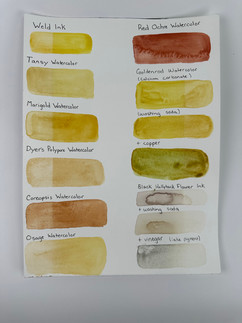 Weld Ink
Tansy Watercolor
Marigold Watercolor
Dyers Polypore Watercolor
Coreopsis Watercolor
Osage Watercolor
Red Ochre Watercolor
Goldenrod Watercolor
(calcium carbonate)
(washing soda)
+ copper
Black Hollyhock Flower Ink
+ washing soda
+ vinegar